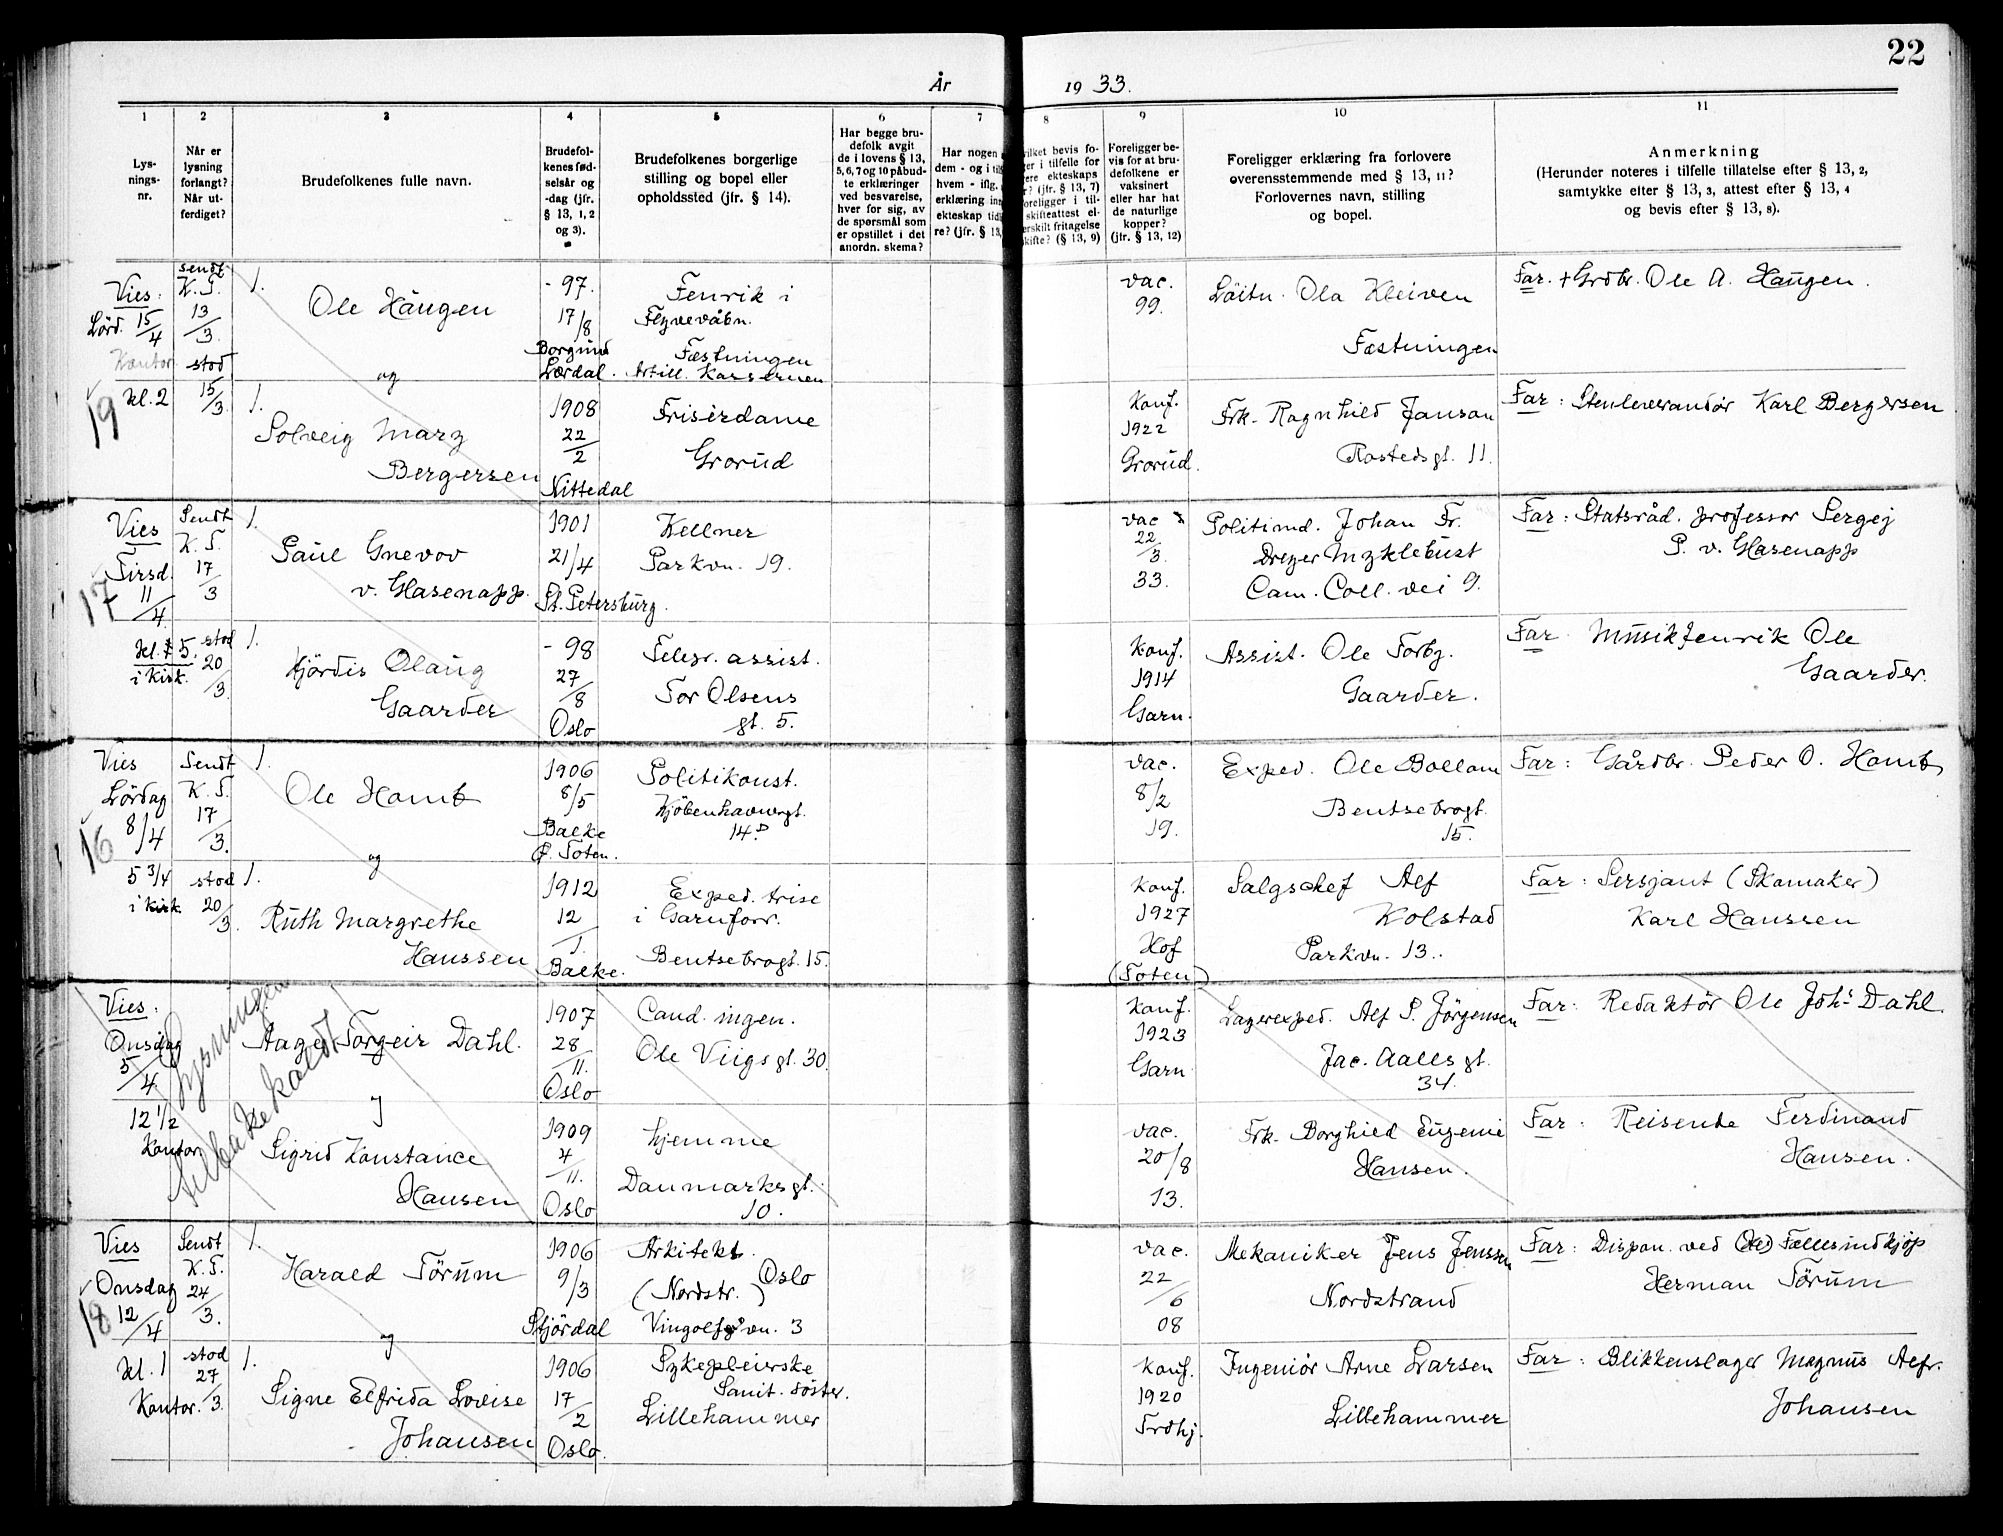 22
År 1933.
1
Lys-
nings-
nr.
2
Når er
lysning
forlangt?
Når ut-
ferdiget?
3
Brudefolkenes fulle navn.
4
Brudefol-
kenes fød-
selsår og
-dag (jfr.
§ 13, 1, 2
og 3).
5
Brudefolkenes borgerlige
stilling og bopel eller
opholdssted (jfr. § 14).
6
Har begge bru-
defolk avgit
de i lovens § 13,
5, 6, 7 og 10 påbud-
te erklæringer
ved besvarelse,
hver for sig, av
de spørsmål som
er opstillet i det
anordn. skema?
7
Har nogen
dem - og i til
hvem - iflg.
erklæring in
ekteskap tid
re? (jfr. § 13,
8
vilket bevis fo-
ger i tilfelle for
ere ekteskaps
r? (jfr. § 13, 7)
oreligger i til-
skifteattest el-
erskilt fritagelse
kifte? (§ 13, 9)
9
Foreligger be-
vis for at bru-
defolkene er
vaksinert
eller har hat
de naturlige
kopper?
(jfr. § 13, 12)
10
Foreligger erklæring fra forlovere
overensstemmende med § 13, 11?
Forlovernes navn, stilling
og bopel.
11
Anmerkning
(Herunder noteres i tilfelle tillatelse efter § 13, 2,
samtykke efter § 13, 3, attest efter § 13, 4
og bevis efter § 13, 8).
Vies.
Lörd. 15/4
Kontor
kl. 2
19
sendt
K. T.
13/3
stod
15/3
1.
Ole Haugen
og
- 97.
17/8
Borgund
Lærdal.
Fenrik i
Flyvevåbn.
Fæstningen
Artill. Kasernen
vac.
99.
Löitn. Ola Kleiven
Fæstningen
Far. + Grdbr. Ole A. Haugen.
1.
Solveig Mary
Bergersen
1908
22/2
Nittedal
Frisèrdame
Grorud
Konf.
1922
Grorud.
Frk. Ragnhild Janson
Rostedsgt. 11.
Far: Stenleverandør Karl Bergersen
Vies
Tirsd.
11/4
17
kl. 5.
i kirk.
Sendt
K. T.
17/3
stod
20/3.
1.
Paul Gnevov
v. Glasenapp.
1901
21/4
St. Petersburg.
Kellner
Parkvn. 19.
vac
22/3.
33.
Politimd. Johan Fr.
Dreyer Myklebust
Cam. Coll. vei 9.
Far: Statsråd. professor Sergej
P. v. Glasenapp
1.
Hjördis Olaug
Gaarder
- 98
27/8
Oslo
Telegr. assist.
Tor Olsens
gt. 5.
Konf.
1914
Garn.
Assist. Ole Torbj.
Gaarder.
Far Musikfenrik Ole
Gaarder.
Vies
Lördag
8/4
16
5 3/4
i kirk.
Sendt
K. T.
17/3.
stod
20/3.
1.
Ole Homb
og
1906
8/5
Balke
Ø. Toten.
Politikonst.
Kjöbenhavnergt.
14 D
vac.
8/2
19.
Exped. Ole Bollam
Bentsebrogt.
15.
Far: Gårdbr. Peder O. Homb
1.
Ruth Margrethe
Hanssen
1912
12/1.
Balke.
Exped. trise
i Garnforr.
Bentsebrogt. 15.
Konf.
1927
Hof
(Toten)
Salgschef Alf
Kolstad
Parkvn. 13..
Far: Sersjant (Skomaker)
Karl Hanssen
Vies.
Onsdag
5/4
12 1/2
Kontor
Lysningen
tilbakekaldt
Aage Torgeir Dahl.
1907
28/11.
Oslo
Cand. ingen.
Ole Viigs gt. 30.
Konf.
1923
Garn
Lagerexped. Alf S. Jörgensen
Jac. Aalls gt.
34.
Far: Redaktör Ole Johs Dahl.
Sigrid Konstance
Hansen
1909
4/11.
Oslo
hjemme
Danmarks gt.
10.
vac.
20/8
13.
Frk. Borghild Eugenie
Hansen.
Far: Reisende Ferdinand
Hansen.
Vies
Onsdag
12/4
18
kl. 1
Kontor.
Sendt
K. T.
24/3.
stod
27/3.
1.
Harald Törum
og
1906
9/3
Stjördal
Arkitekt.
(Nordstr.) Oslo
Vingolfsvn. 3
vac.
22/6
08
Mekaniker Jens Jenssen
Nordstrand
Far: Dispon. ved Fællesindkjöp
Herman Törum
1.
Signe Elfrida Lovise
Johansen
1906
17/2
Oslo.
Sykepleierske
Sanit. söster.
Lillehammer
Konf.
1920
Trdhj.
Ingeniör Arne Larsen
Lillehammer
Far: Blikkenslager Magnus Alfr.
Johansen